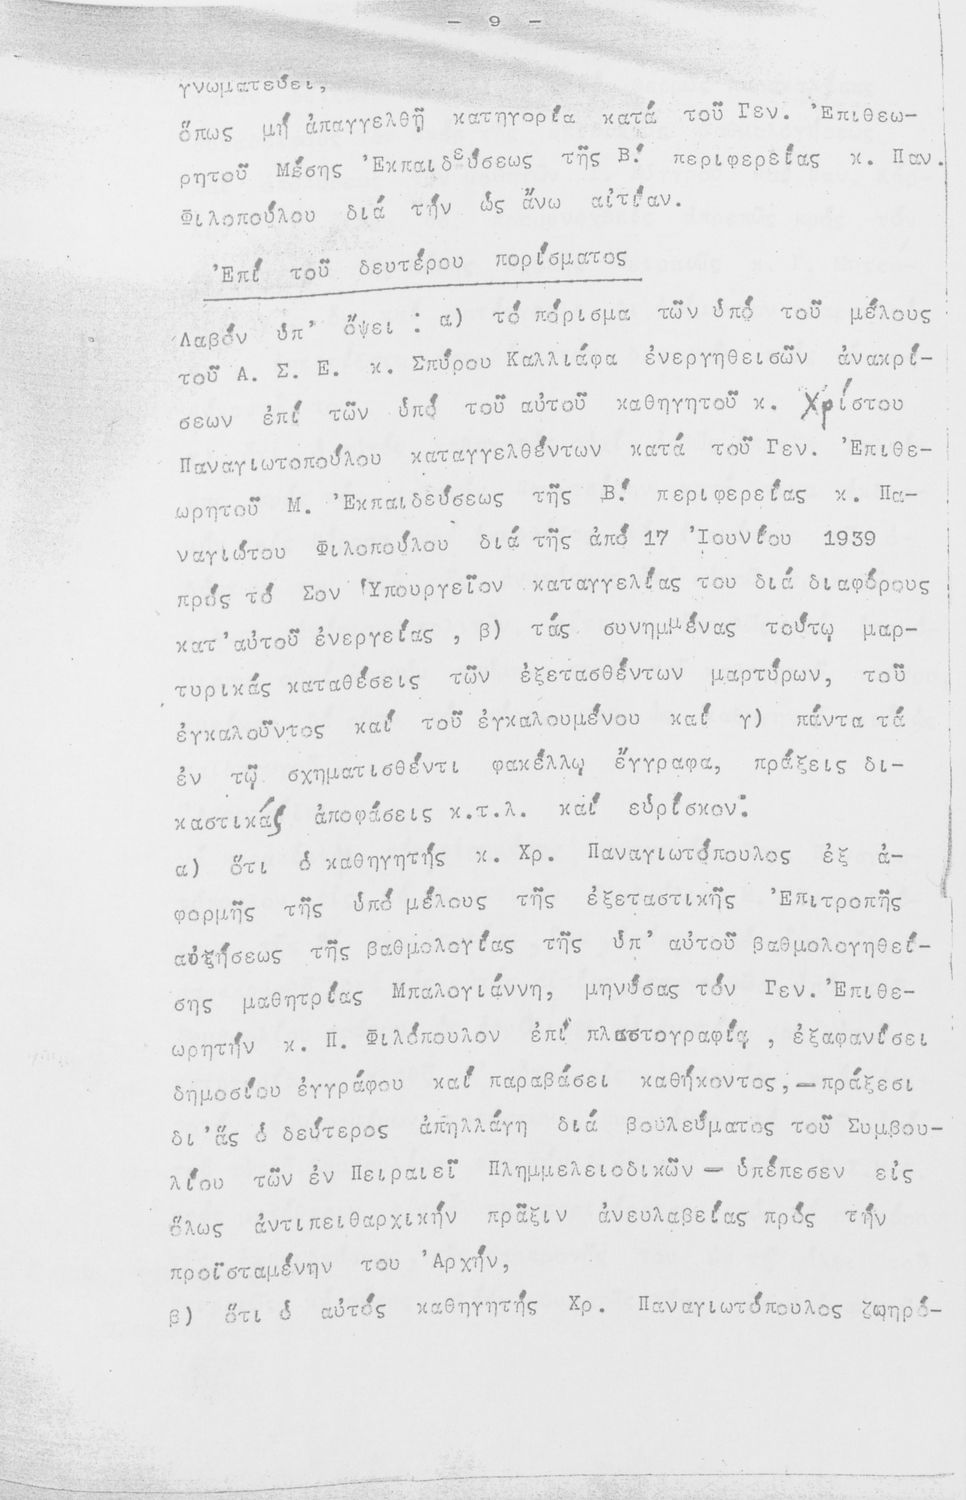 - 9 -
γνωματεύει,
ὅπως μή ἀπαγγελθῇ κατηγορία κατά τοῦ Γεν. Ἐπιθεω-
ρητοῦ Μέσης Ἐκπαιδεύσεως τῆς Β! περιφερείας κ. Παν.
Φιλοπούλου διά τήν ὡς ἄνω αἰτίαν.
Ἐπί τοῦ δευτέρου πορίσματος
Λαβόν ὑπ' ὄψει : α) τό πόρισμα τῶν ὑπό τοῦ μέλους
τοῦ Α. Σ. Ε. κ. Σπύρου Καλλιάφα ἐνεργηθεισῶν ἀνακρί-
σεων ἐπί τῶν ὑπό τοῦ αὐτοῦ καθηγητοῦ κ. Χρίστου
Παναγιωτοπούλου καταγγελθέντων κατά τοῦ Γεν. Ἐπιθε-
ωρητοῦ Μ. Ἐκπαιδεύσεως τῆς Β! περιφερείας κ. Πα-
ναγιώτου Φιλοπούλου διά τῆς ἀπό 17 Ἰουνίου 1939
πρός τό Σον Ὑπουργεῖον καταγγελίας του διά διαφόρους
κατ' αὐτοῦ ἐνεργείας , β) τάς συνημμένας τούτῳ μαρ-
τυρικάς καταθέσεις τῶν ἐξετασθέντων μαρτύρων, τοῦ
ἐγκαλοῦντος καί τοῦ ἐγκαλουμένου καί γ) πάντα τά
ἐν τῷ σχηματισθέντι φακέλλῳ ἔγγραφα, πράξεις δι-
καστικάς ἀποφάσεις κ.τ.λ. καί εὑρίσκον:
α) ὅτι ὁ καθηγητής κ. Χρ. Παναγιωτόπουλος ἐξ ἀ-
φορμῆς τῆς ὑπό μέλους τῆς ἐξεταστικῆς Ἐπιτροπῆς
αὐξήσεως τῆς βαθμολογίας τῆς ὑπ' αὐτοῦ βαθμολογηθεί-
σης μαθητρίας Μπαλογιάννη, μηνύσας τόν Γεν. Ἐπιθε-
ωρητήν κ. Π. Φιλόπουλον ἐπί πλαστογραφίᾳ , ἐξαφανίσει
δημοσίου ἐγγράφου καί παραβάσει καθήκοντος,—πράξεσι
δι' ἅς ὁ δεύτερος ἀπηλλάγη διά βουλεύματος τοῦ Συμβου-
λίου τῶν ἐν Πειραιεῖ Πλημμελειοδικῶν — ὑπέπεσεν εἰς
ὅλως ἀντιπειθαρχικήν πρᾶξιν ἀνευλαβείας πρός τήν
προϊσταμένην του Ἀρχήν,
β) ὅτι ὁ αὐτός καθηγητής Χρ. Παναγιωτόπουλος ζωηρό-